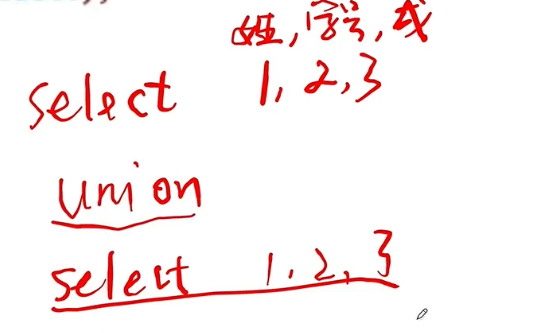 姓,学号,成
select 1,2,3
union
select 1,2,3